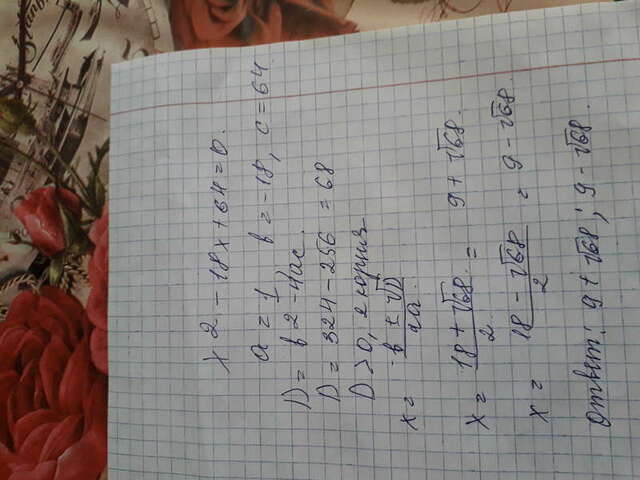 x2 - 18x + 64 = 0.
a = 1 b = -18, c = 64.
D = b2 - 4ac.
D = 324 - 256 = 68
D > 0, 2 корня
x = -b ± √D / 2a.
x = 18 + √68 / 2 = 9 + √68.
x = 18 - √68 / 2 = 9 - √68.
Ответ: 9 + √68; 9 - √68.